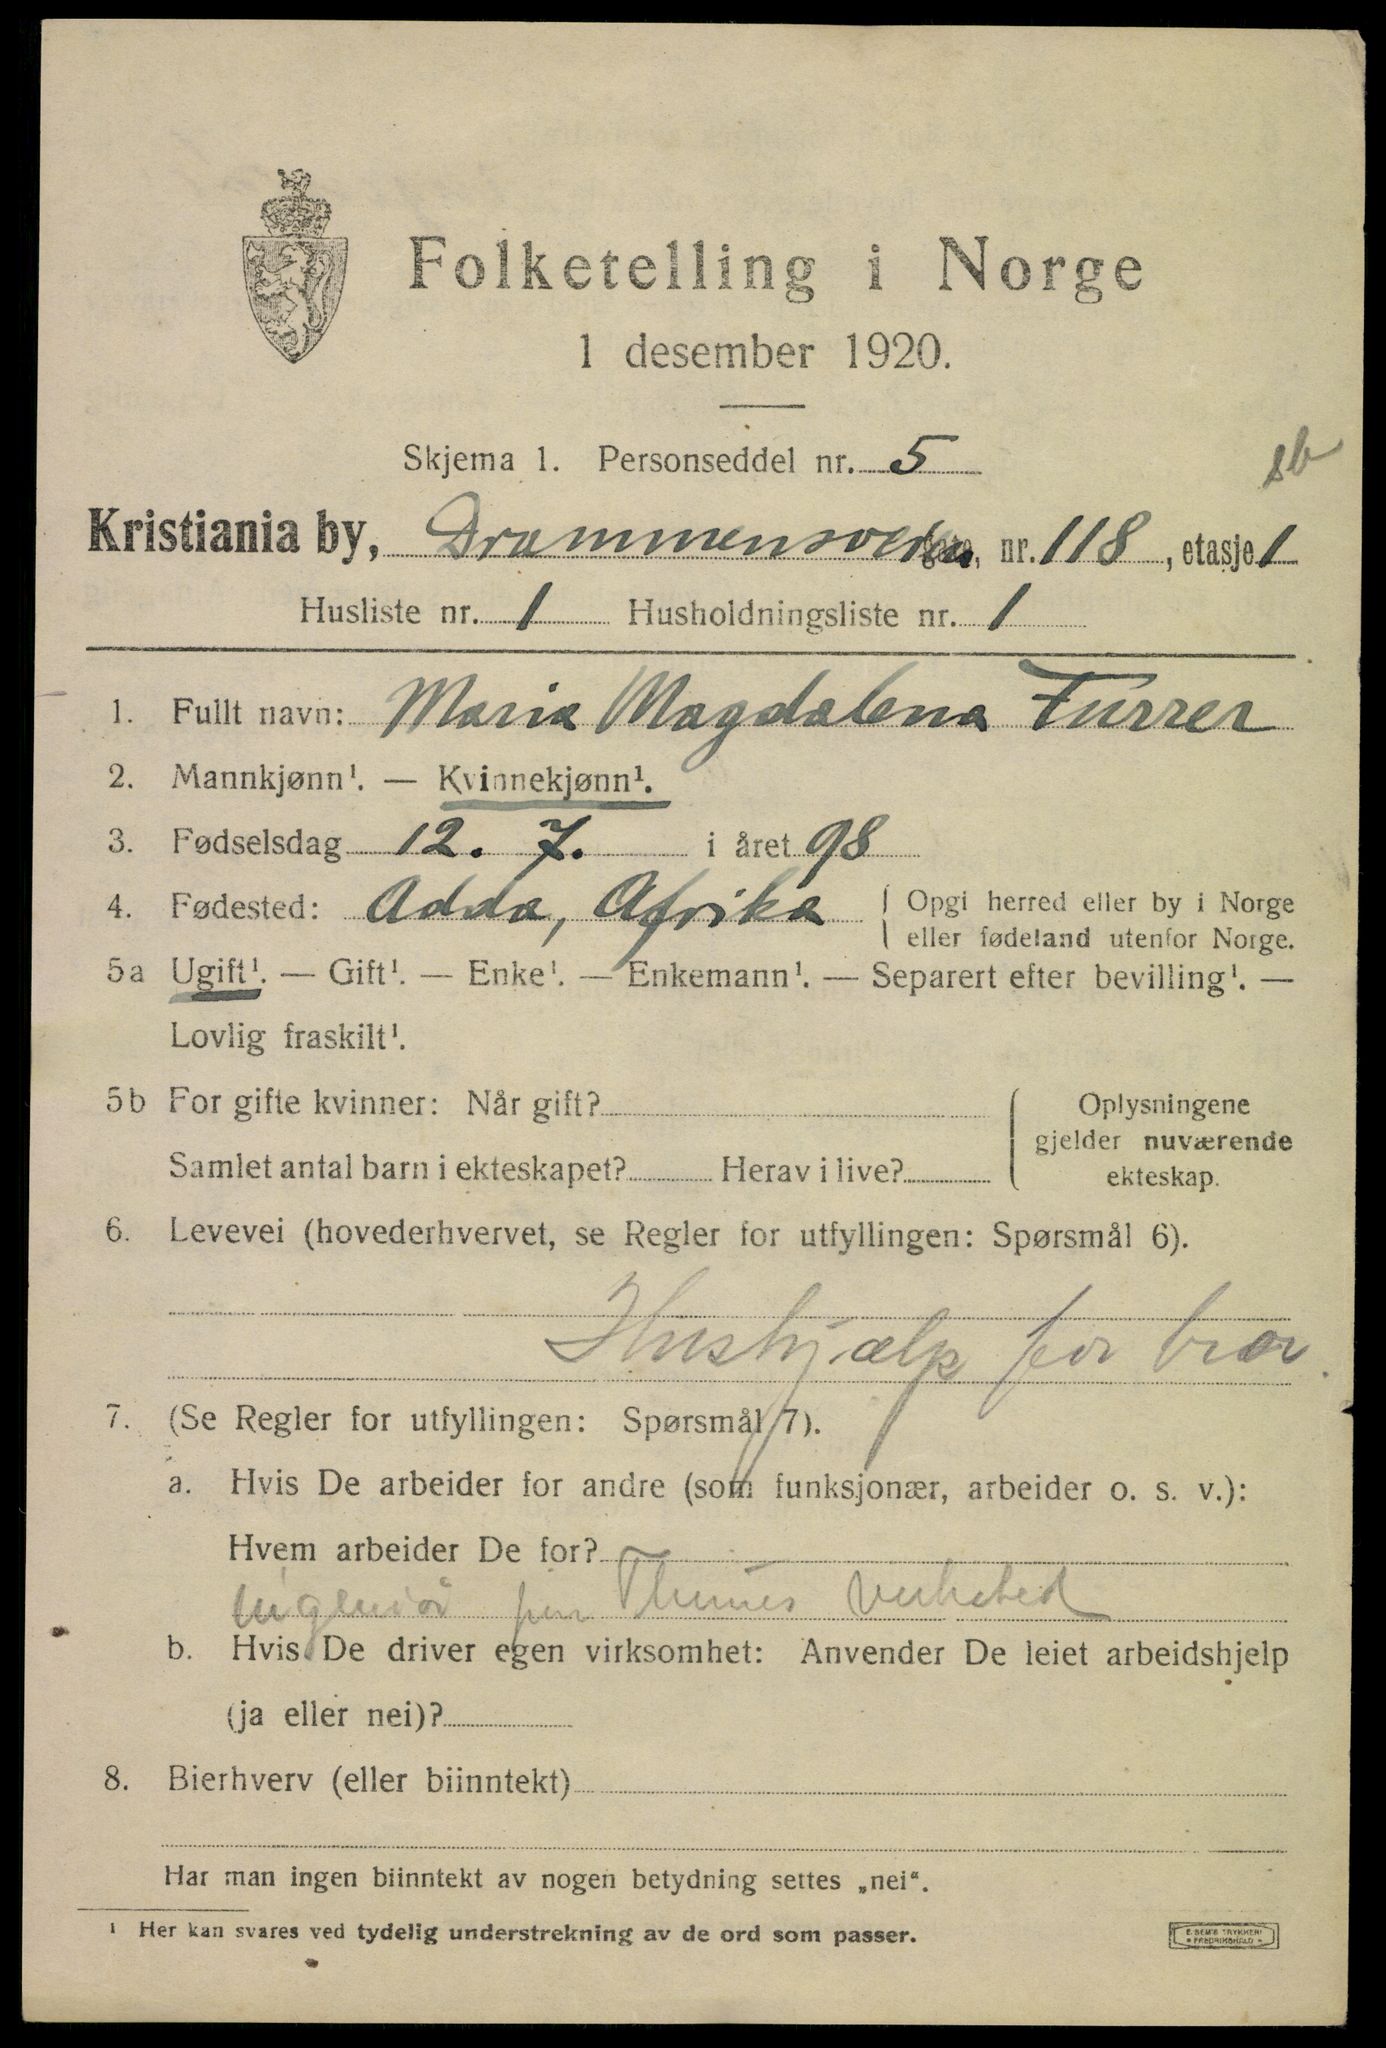 Folketelling i Norge
1 desember 1920.
Skjema 1. Personseddel nr. 5
sb
Kristiania by, Drammensveien gate, nr. 118, etasje 1
Husliste nr. 1 Husholdningsliste nr. 1
1. Fullt navn: Maria Magdalena Furrer
2. Mannkjønn¹. — Kvinnekjønn¹.
3. Fødselsdag 12. 7. i året 98
4. Fødested: Adda, Afrika { Opgi herred eller by i Norge
eller fødeland utenfor Norge.
5a Ugift¹. — Gift¹. — Enke¹. — Enkemann¹. — Separert efter bevilling¹. —
Lovlig fraskilt¹.
5b For gifte kvinner: Når gift? { Oplysningene
gjelder nuværende
Samlet antal barn i ekteskapet? Herav i live?
ekteskap.
6. Levevei (hovederhvervet, se Regler for utfyllingen: Spørsmål 6).
Hushjælp for bror
7. (Se Regler for utfyllingen: Spørsmål 7).
a. Hvis De arbeider for andre (som funksjonær, arbeider o. s. v.):
Hvem arbeider De for?
Ingeniør Thunes verksted
b. Hvis De driver egen virksomhet: Anvender De leiet arbeidshjelp
(ja eller nei)?
8. Bierhverv (eller biinntekt)
Har man ingen biinntekt av nogen betydning settes „nei“.
¹ Her kan svares ved tydelig understrekning av de ord som passer.
E. SEM'S TRYKKERI
• FREDRIKSHALD •